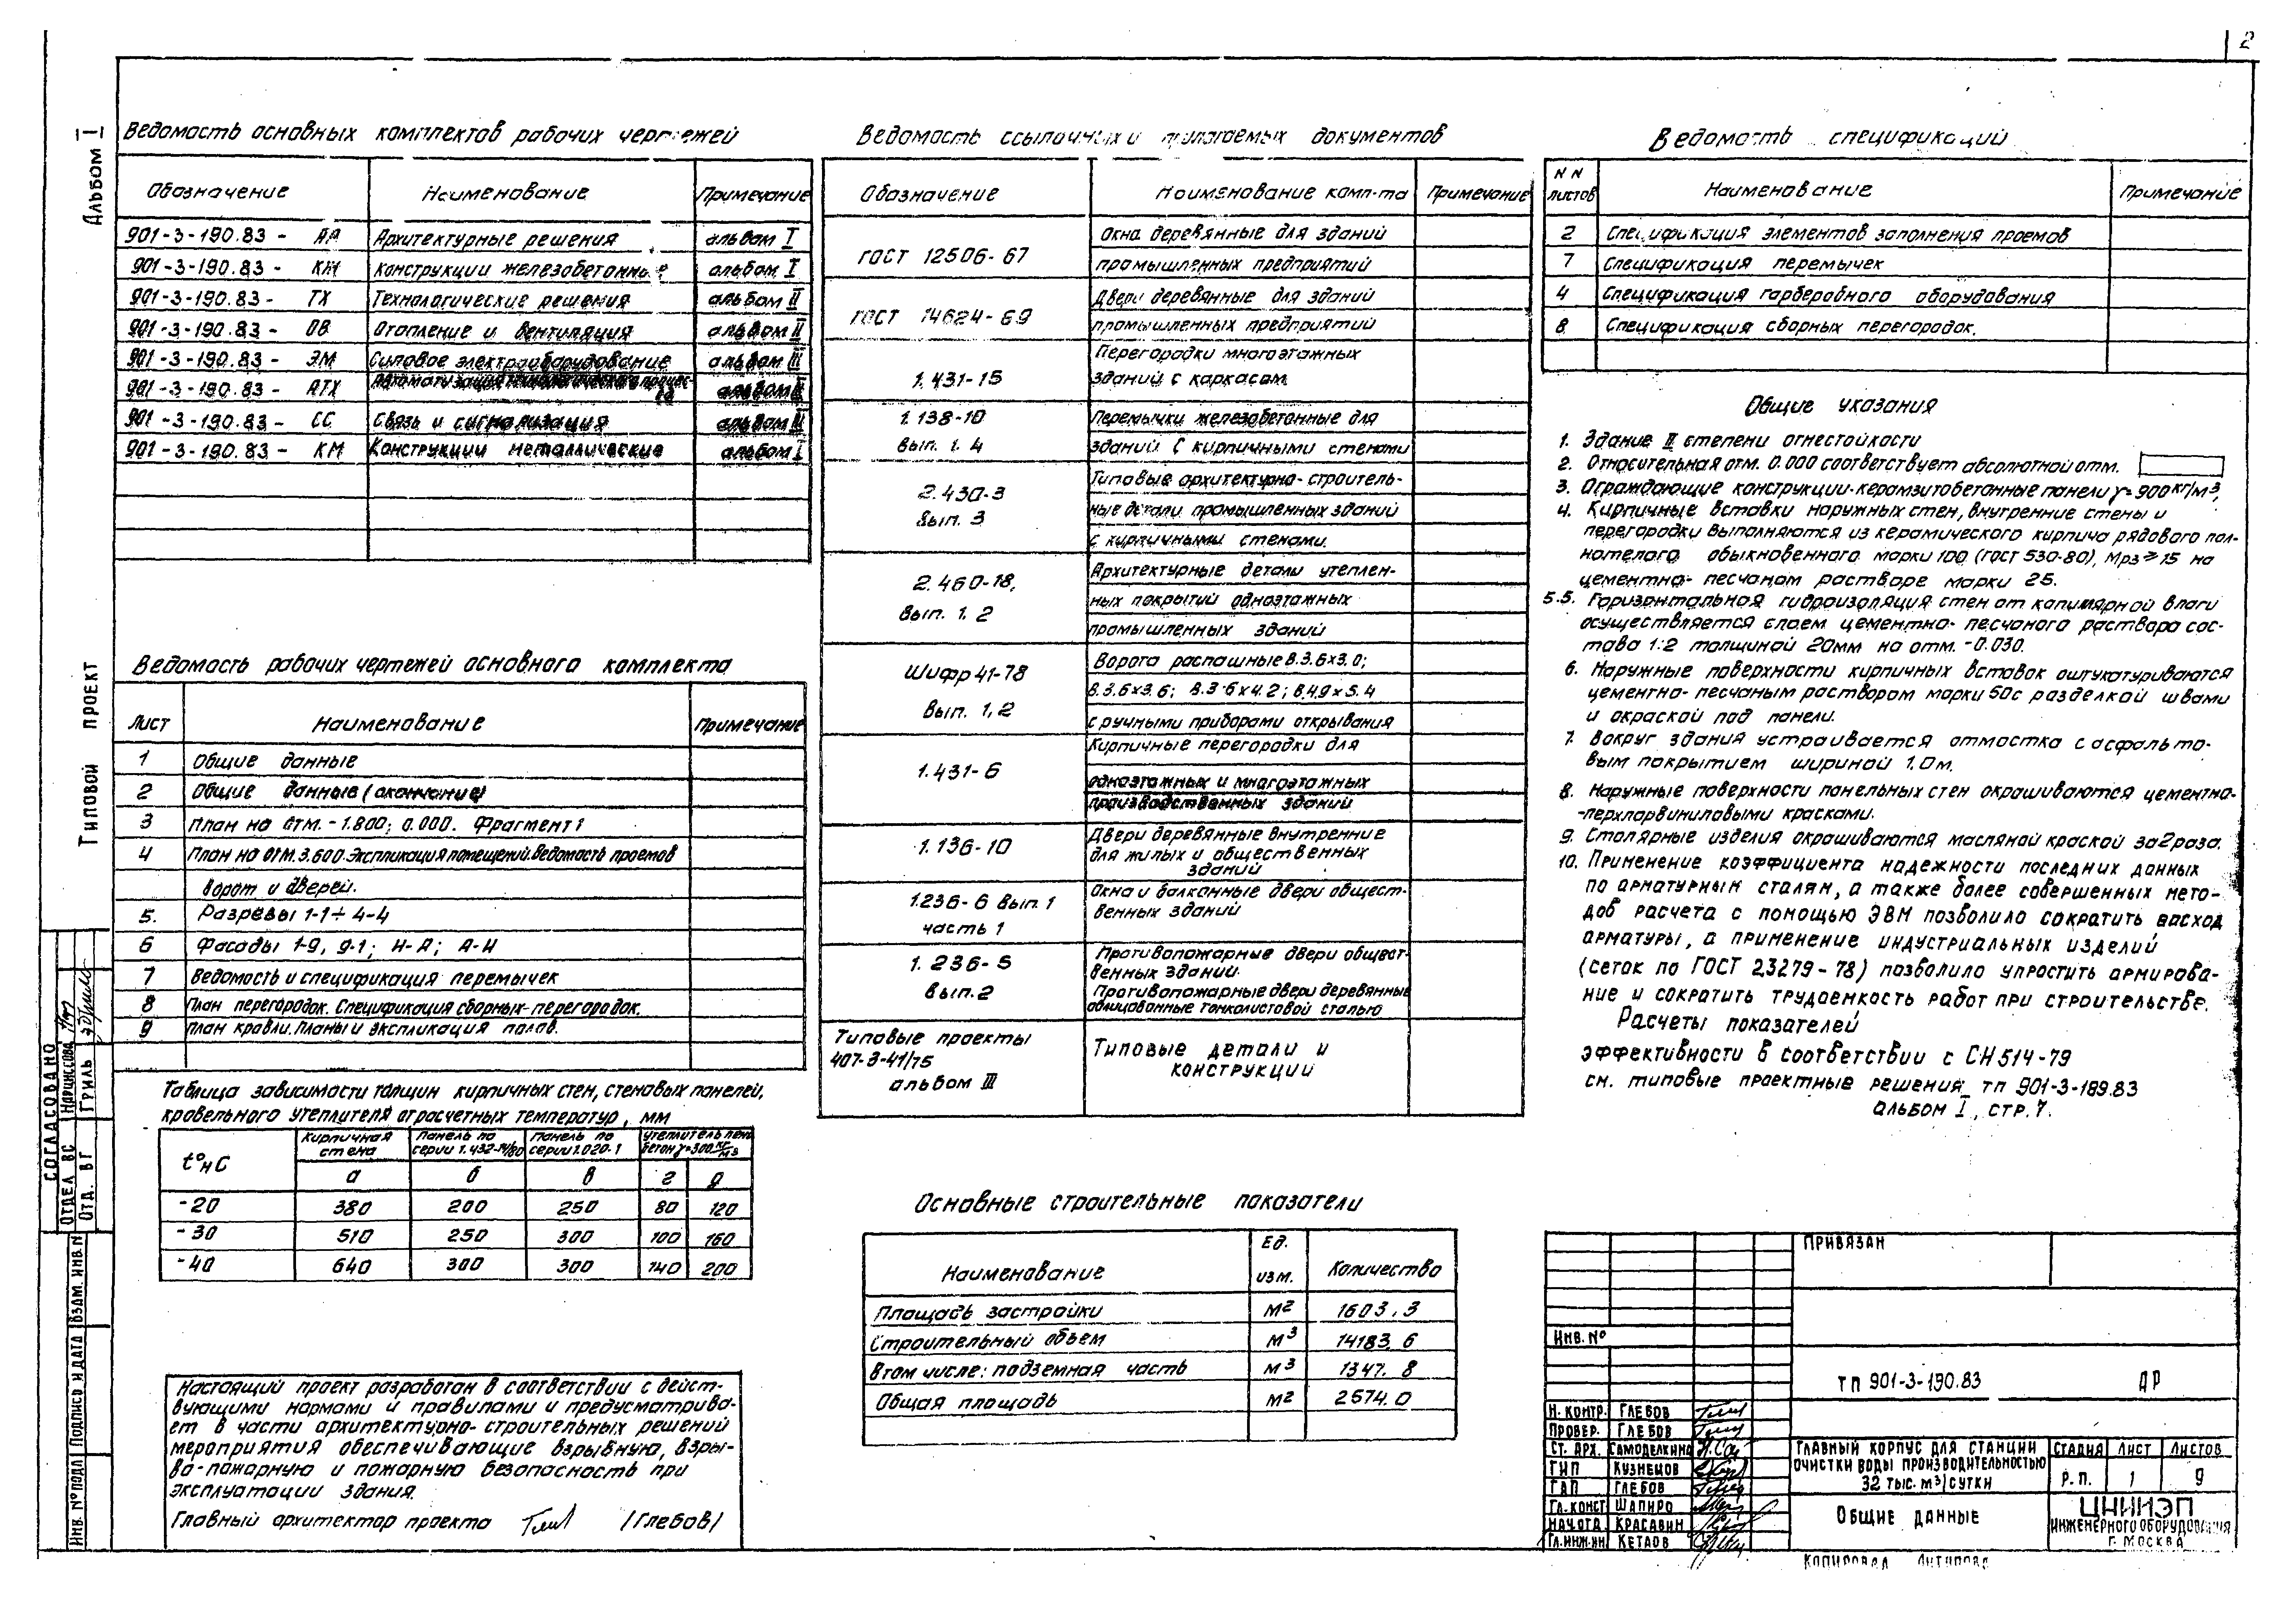 2
Альбом I
Типовой проект
Ведомость основных комплектов рабочих чертежей
Обозначение Наименование Примечание
901-3-190.83 - АР Архитектурные решения альбом I
901-3-190.83 - КЖ Конструкции железобетонные альбом I
901-3-190.83 - ТХ Технологические решения альбом II
901-3-190.83 - ОВ Отопление и вентиляция альбом II
901-3-190.83 - ЭМ Силовое электрооборудование альбом III
901-3-190.83 - АТХ Автоматизация альбом
901-3-190.83 - СС Связь и сигнализация альбом III
901-3-190.83 - КМ Конструкции металлические альбом I
Ведомость рабочих чертежей основного комплекта
Лист Наименование Примечание
1 Общие данные
2 Общие данные (окончание)
3 План на отм. -1.800; 0.000. Фрагмент 1
4 План на отм. 3.600. Экспликация помещений. Ведомость проемов
ворот и дверей.
5. Разрезы 1-1÷4-4
6 Фасады 1-9, 9-1; И-А; А-И
7 Ведомость и спецификация перемычек
8 План перегородок. Спецификация сборных-перегородок.
9 План кровли. Планы и экспликация полов.
Таблица зависимости толщин кирпичных стен, стеновых панелей,
кровельного утеплителя от расчетных температур, мм
t°н С Кирпичная стена Панель по серии 1.432-14/80 Панель по серии 1.020-1 Утеплитель пенобетон γ=300 кг/м3
а б в г д
-20 380 200 250 80 120
-30 510 250 300 100 160
-40 640 300 300 140 200
Настоящий проект разработан в соответствии с дейст-
вующими нормами и правилами и предусматрива-
ет в части архитектурно-строительных решений
мероприятия обеспечивающие взрывную, взры-
во-пожарную и пожарную безопасность при
эксплуатации здания.
Главный архитектор проекта /Глебов/
Ведомость ссылочных и прилагаемых документов
Обозначение Наименование комп-та Примечание
ГОСТ 12506-67 Окна деревянные для зданий
промышленных предприятий
ГОСТ 14624-69 Двери деревянные для зданий
промышленных предприятий
1.431-15 Перегородки многоэтажных
зданий с каркасом
1.138-10 Перемычки железобетонные для
вып. 1.4 зданий с кирпичными стенами
2.430-3 Типовые архитектурно-строитель-
вып. 3 ные детали промышленных зданий
с кирпичными стенами.
2.460-18, Архитектурные детали утеплен-
вып. 1.2 ных покрытий одноэтажных
промышленных зданий
Шифр 41-78 Ворота распашные в.3.6х3.0;
в.3.6х3.6; в.3.6х4.2; в.4.9х5.4
вып. 1,2 с ручными приборами открывания
1.431-6 Кирпичные перегородки для
одноэтажных и многоэтажных
производственных зданий
1.136-10 Двери деревянные внутренние
для жилых и общественных
зданий
1.236-6 вып. 1 Окна и балконные двери общест-
часть 1 венных зданий
1.236-5 Противопожарные двери общест-
вып. 2 венных зданий.
Противопожарные двери деревянные
облицованные тонколистовой сталью
Типовые проекты Типовые детали и
407-3-41/75 конструкции
альбом III
Основные строительные показатели
Наименование Ед. изм. Количество
Площадь застройки м2 1603.3
Строительный объем м3 14183.6
В том числе: подземная часть м3 1347.8
Общая площадь м2 2574.0
Ведомость спецификаций
NN листов Наименование Примечание
2 Спецификация элементов заполнения проемов
7 Спецификация перемычек
4 Спецификация гардеробного оборудования
8 Спецификация сборных перегородок.
Общие указания
1. Здание II степени огнестойкости
2. Относительная отм. 0.000 соответствует абсолютной отм.
3. Ограждающие конструкции-керамзитобетонные панели γ=900 кг/м3,
4. Кирпичные вставки наружных стен, внутренние стены и
перегородки выполняются из керамического кирпича рядового пол-
нотелого обыкновенного марки 100 (ГОСТ 530-80), Мрз ≥ 15 на
цементно-песчаном растворе марки 25.
5.5. Горизонтальная гидроизоляция стен от капилярной влаги
осуществляется слоем цементно-песчаного раствора сос-
тава 1:2 толщиной 20мм на отм. -0.030.
6. Наружные поверхности кирпичных вставок оштукатуриваются
цементно-песчаным раствором марки 50 с разделкой швами
и окраской под панели.
7. Вокруг здания устраивается отмостка с асфальто-
вым покрытием шириной 1.0м.
8. Наружные поверхности панельных стен окрашиваются цементно-
-перхлорвиниловыми красками.
9. Столярные изделия окрашиваются масляной краской за 2 раза.
10. Применение коэффициента надежности последних данных
по арматурным сталям, а также более совершенных мето-
дов расчета с помощью ЭВМ позволило сократить расход
арматуры, а применение индустриальных изделий
(сеток по ГОСТ 23279-78) позволило упростить армирова-
ние и сократить трудоемкость работ при строительстве.
Расчеты показателей
эффективности в соответствии с СН 514-79
см. типовые проектные решения ТП 901-3-189.83
альбом I, стр. 7.
Согласовано
Отдел ВС Нарциссова
Отд. ВГ Гриль
Взам. инв. N
Подпись и дата
Инв. № подл
Привязан
Инв. №
ТП 901-3-190.83 АР
Н. контр. Глебов
Провер. Глебов
Ст. арх. Самоделкина
ГИП Кузнецов
ГАП Глебов
Гл. конст Шапиро
Нач. отд. Красавин
Гл. инж. ин. Кетаов
Главный корпус для станции
очистки воды производительностью
32 тыс. м3/сутки
Стадия Лист Листов
Р.П. 1 9
Общие данные
ЦНИИЭП
инженерного оборудования
г. Москва
Копировал Антипова